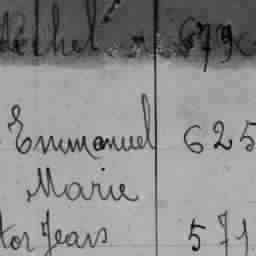 679
Emmanuel 625
Marie
tor Jean 571